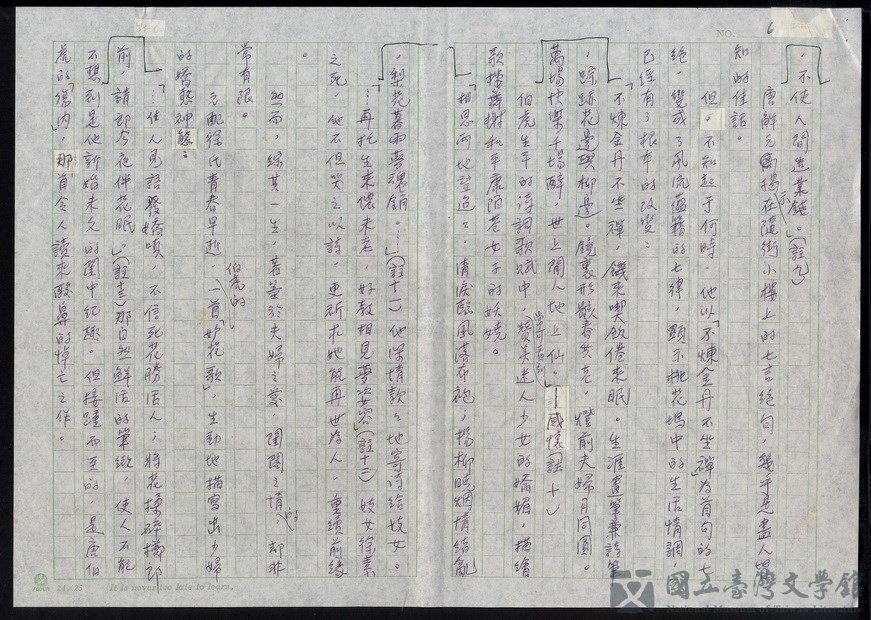 NO. 6
，不使人間造業錢。（註九）
唐解元高揭在隨街小樓上的七言絕句，幾乎是盡人皆
知的佳話。
但，不知起于何時，他以「不煉金丹不坐禪」為首句的七
絕，變成了風流蘊籍的七律，顯示桃花塢中的生活情調，
已經有了根本的改變：
「不煉金丹不坐禪，饑來喫飯倦來眠。生涯畫筆兼詩筆
，踪跡花邊與柳邊。鏡裏形骸春共老，燈前夫婦月同圓。
萬場快樂千場醉，世上閒人地上仙。」—感懷（註十）
伯虎生平的詩詞歌賦中，常可看到贊美迷人少女的嬌媚，描繪
歌樓舞榭和平康陌巷女子的妖嬈。
「相思兩地望迢々，清淚臨風落布袍；楊柳曉烟情緒亂
，梨花暮雨夢魂銷。…」（註十一）他深情款々地寄詩給妓女。
「…再托生來儂未老，好教相見夢姿容」（註十二）妓女徐素
之死，他不但哭之以詩，更祈求她能再世為人，重續前緣
。
然而，綜其一生，著墨於夫婦之愛，閨閣之情的，却非
常有限。
元配徐氏青春早逝，伯虎的一首「妒花歌」，生動地描寫出少婦
的嬌憨神態：
「…佳人見語發嬌嗔，不信死花勝活人；將花揉碎擲郎
前，請郎今夜伴花眠。」（註十三）那自然鮮活的筆緻，使人不能
不想到是他新婚未久的閨中紀趣。但接踵而至的，是唐伯
虎的「傷內」，那首令人讀來酸鼻的悼亡之作。
24×25 It is never too late to learn.
國立臺灣文學館